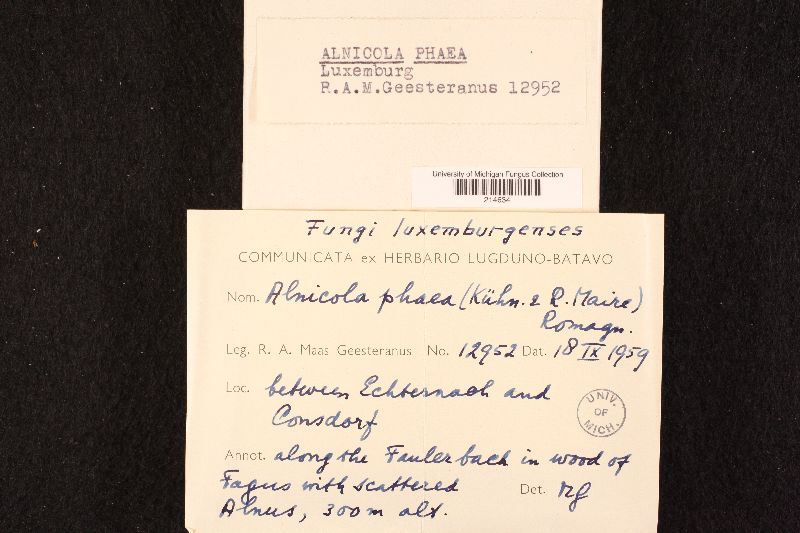 ALNICOLA PHAEA
Luxemburg
R.A.M.Geesteranus 12952
University of Michigan Fungus Collection
Fungi luxemburgenses
COMMUNICATA ex HERBARIO LUGDUNO-BATAVO
Nom. Alnicola phaea (Kühn. & R. Maire)
Romagn.
Leg. R. A. Maas Geesteranus No. 12952 Dat. 18 IX 1959
Loc. between Echternach and
Consdorf
UNIV. OF MICH.
Annot. along the Faulerbach in wood of
Fagus with scattered
Alnus, 300 m alt.
Det. Mg